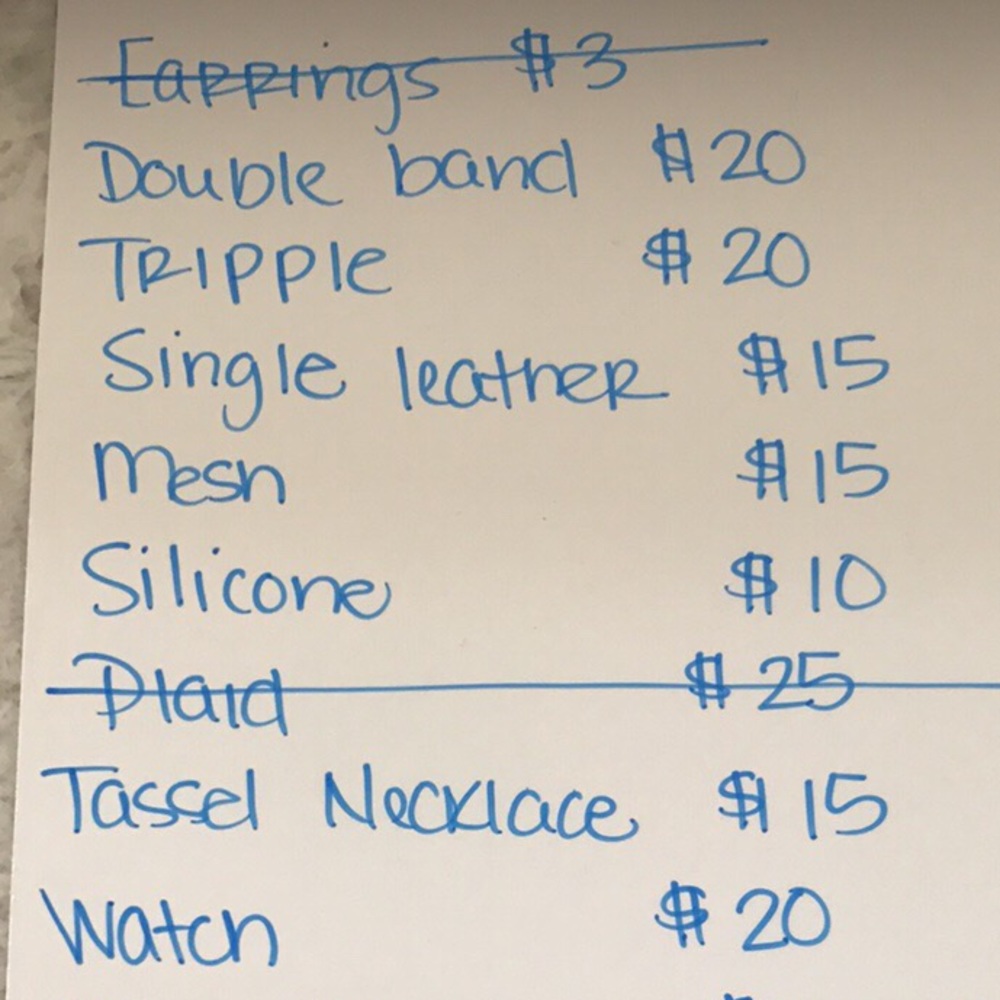 Earrings $3
Double band $20
Tripple $20
Single leather $15
Mesh $15
Silicone $10
Plaid $25
Tassel Necklace $15
Watch $20